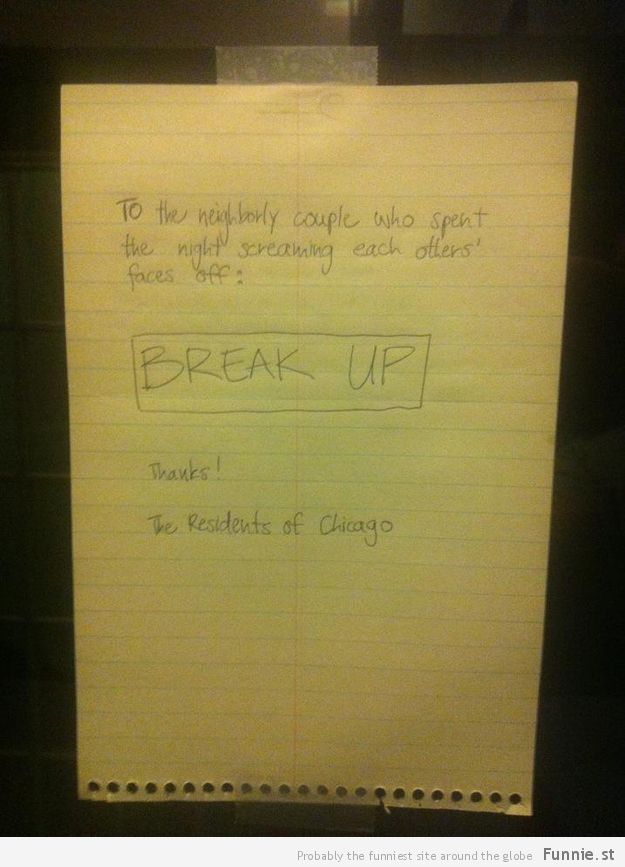 To the neighborly couple who spent
the night screaming each others'
faces off:
BREAK UP
Thanks!
The Residents of Chicago
Probably the funniest site around the globe Funnie.st